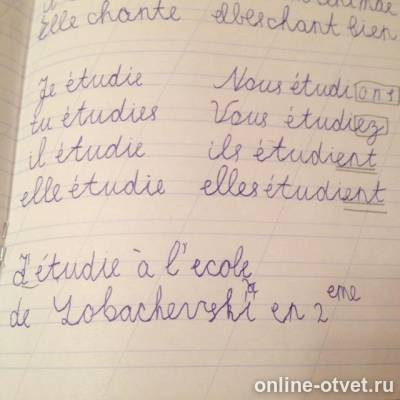 Elle chante elles chant bien
Je étudie Nous étudions
tu étudies Vous étudiez
il étudie ils étudient
elle étudie elles étudient
J'étudie à l'ecole
de Lobachevski en 2 eme
online-otvet.ru